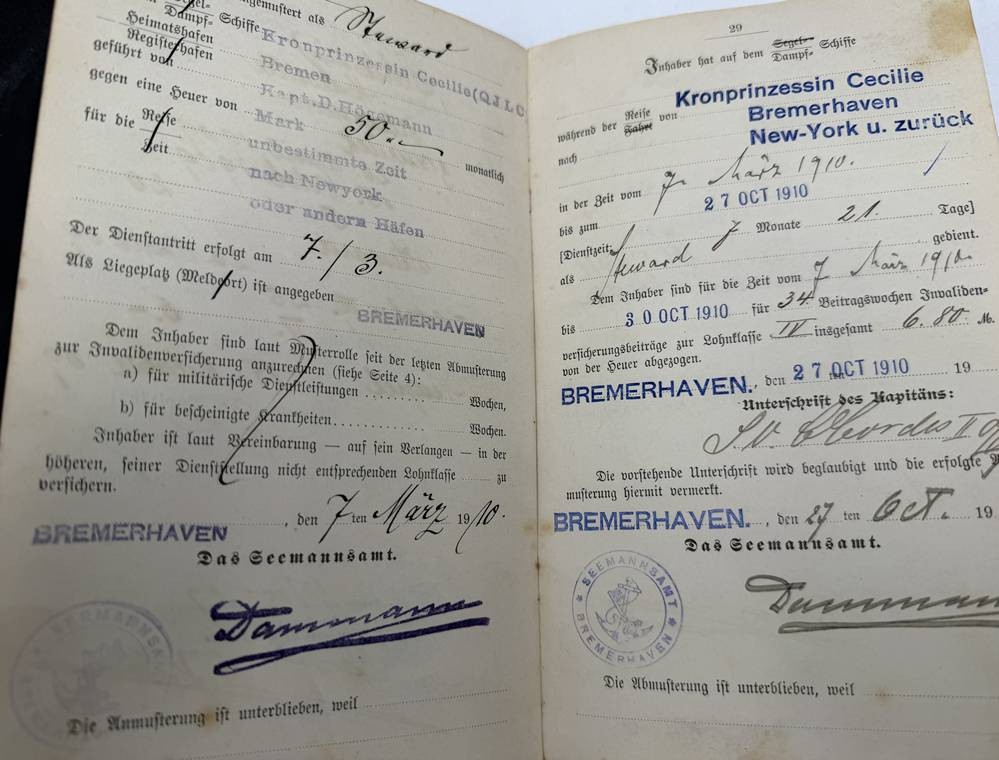 angemustert als Steward
Dampf- Schiffe Kronprinzessin Cecilie (QJLC
Heimatshafen
Registerhafen Bremen
geführt von Kapt. D. Högemann
gegen eine Heuer von Mark 50 monatlich
für die Reise
Zeit unbestimmte Zeit
nach Newyork
oder andern Häfen
Der Dienstantritt erfolgt am 7./3.
Als Liegeplatz (Meldeort) ist angegeben
BREMERHAVEN
Dem Inhaber sind laut Musterrolle seit der letzten Abmusterung
zur Invalidenversicherung anzurechnen (siehe Seite 4):
a) für militärische Dienstleistungen Wochen,
b) für bescheinigte Krankheiten Wochen.
Inhaber ist laut Vereinbarung — auf sein Verlangen — in der
höheren, seiner Dienststellung nicht entsprechenden Lohnklasse zu
versichern.
BREMERHAVEN, den 7ten März 1910.
Das Seemannsamt.
Dammann
SEEMANNSA
Die Anmusterung ist unterblieben, weil
29
Inhaber hat auf dem Segel- Schiffe
Dampf-
Kronprinzessin Cecilie
während der Reise von Bremerhaven
Fahrt
nach New-York u. zurück
in der Zeit vom 7. März 1910.
bis zum 27 OCT 1910
[Dienstzeit: 7 Monate 21. Tage]
als Steward gedient.
Dem Inhaber sind für die Zeit vom 7 März 1910.
bis 30 OCT 1910 für 34 Beitragswochen Invaliden-
versicherungsbeiträge zur Lohnklasse IV insgesamt 6.80 M.
von der Heuer abgezogen.
BREMERHAVEN., den 27 OCT 1910 19
Unterschrift des Kapitäns:
Cordes II
Die vorstehende Unterschrift wird beglaubigt und die erfolgte
musterung hiermit vermerkt.
BREMERHAVEN., den 27 ten Oct. 19
Das Seemannsamt.
Dammann
SEEMANNSAMT
BREMERHAVEN
Die Abmusterung ist unterblieben, weil